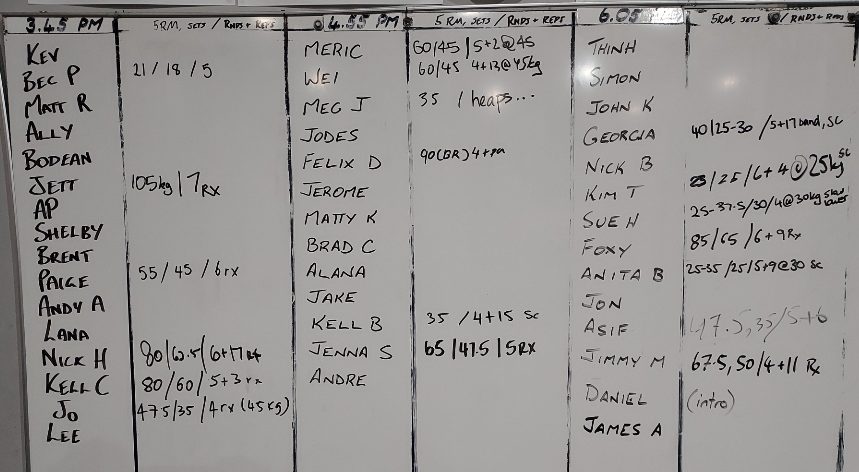 3.45 PM 5RM, SETS / RNDS + REPS
KEV
BEC P 21 / 18 / 5
MATT R
ALLY
BODEAN
JETT 105kg / 7 RX
AP
SHELBY
BRENT
PAIGE 55 / 45 / 6rx
ANDY A
LANA
NICK H 80/62.5/6+17 rx
KELL C 80/60/5+3 rx
JO 47.5/35/4rx (45kg)
LEE
4.55 PM 5RM, SETS / RNDS + REPS
MERIC 60/45 / 5+2@45
WEI 60/45 4+13@45kg
MEG J 35 / heaps...
JODES
FELIX D 90(BR) 4+
JEROME
MATTY K
BRAD C
ALANA
JAKE
KELL B 35 / 4+15 Sc
JENNA S 65 / 47.5 / 5 RX
ANDRE
6.05 PM 5RM, SETS / RNDS + REPS
THINH
SIMON
JOHN K
GEORGIA 40/25-30 / 5+17 band, SC
NICK B /25/6+4@25kg SC
KIM T 25-37.5/30/4@30kg
SUE H 85/65/6+9 Rx
FOXY
ANITA B 25-35/25/5+9@30 SC
JON
ASIF 47.5, 35/5+6
JIMMY M 67.5, 50/4+11 Rx
DANIEL (intro)
JAMES A